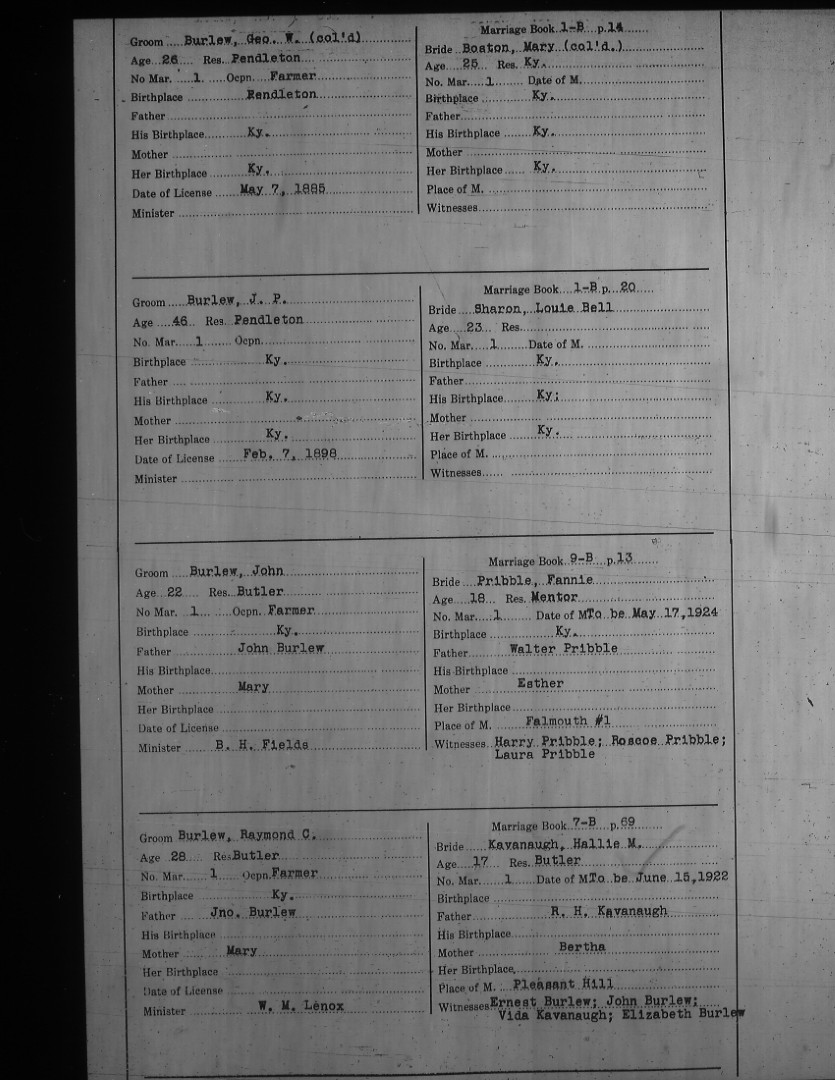 Groom Burlew, Geo. W. (col'd)
Age 26 Res. Pendleton
No Mar. 1. Ocpn. Farmer
Birthplace Rendleton
Father
His Birthplace Ky.
Mother
Her Birthplace Ky.
Date of License May 7, 1885
Minister
Marriage Book 1-B p.14
Bride Boston, Mary (col'd.)
Age 25 Res. Ky.
No. Mar. 1 Date of M.
Birthplace Ky.
Father
His Birthplace Ky.
Mother
Her Birthplace Ky.
Place of M.
Witnesses
Groom Burlew, J. P.
Age 46 Res. Pendleton
No. Mar. 1 Ocpn.
Birthplace Ky.
Father
His Birthplace Ky.
Mother
Her Birthplace Ky.
Date of License Feb. 7, 1898
Minister
Marriage Book 1-B p. 20
Bride Sharon, Louie Bell
Age 23 Res.
No. Mar. 1 Date of M.
Birthplace Ky.
Father
His Birthplace Ky:
Mother
Her Birthplace Ky.
Place of M.
Witnesses
Groom Burlew, John
Age 22 Res. Butler
No Mar. 1 Ocpn. Farmer
Birthplace Ky.
Father John Burlew
His Birthplace
Mother Mary
Her Birthplace
Date of License
Minister B. H. Fields
Marriage Book 9-B p.13
Bride Pribble, Fannie
Age 18 Res. Mentor
No. Mar. 1 Date of M To be May 17,1924
Birthplace Ky.
Father Walter Pribble
His Birthplace
Mother Esther
Her Birthplace
Place of M. Falmouth #1
Witnesses Harry Pribble; Roscoe Pribble;
Laura Pribble
Groom Burlew, Raymond C.
Age 28 Res Butler
No. Mar. 1 Ocpn. Farmer
Birthplace Ky.
Father Jno. Burlew
His Birthplace
Mother Mary
Her Birthplace
Date of License
Minister W. M. Lenox
Marriage Book 7-B p.69
Bride Kavanaugh, Hallie M.
Age 17 Res. Butler
No. Mar. 1 Date of M To be June 15,1922
Birthplace
Father R. H. Kavanaugh
His Birthplace
Mother Bertha
Her Birthplace
Place of M. Pleasant Hill
Witnesses Ernest Burlew; John Burlew;
Vida Kavanaugh; Elizabeth Burlew